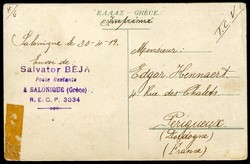 ΕΛΛΑΣ - GRÈCE.
Salonique le 30-4-19.
Envoi de
Salvator BÉJA
Poste Restante
à SALONIQUE (Grèce)
R. E. C. P. 3034
Monsieur:
Edgar Hennaert.
4 Rue des Chalets.
Périgueux
(Dordogne)
(France)